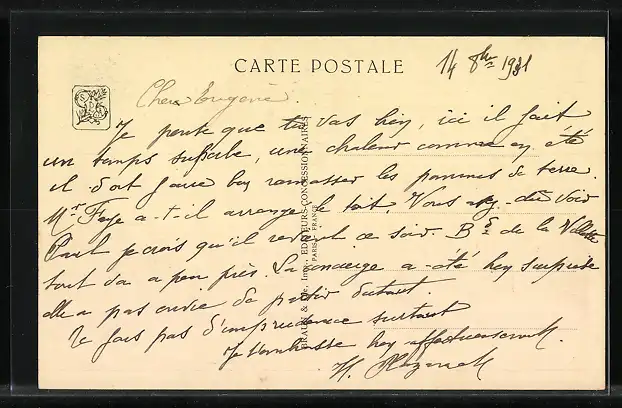 CARTE POSTALE
14 8bre 1931
Cher Eugène.
Je pense que tu vas bien, ici il fait
un temps superbe, une chaleur comme en été
il doit faire bon ramasser les pommes de terre.
Mr Faye a-t-il arrangé le toit, Vous avez dû voir
Paul je crois qu'il revient ce soir. Bd de la Villette
tout va a peu près. La concierge a été bien surprise
elle a pas envie de partir
Ne fais pas d'imprudence surtout
Je t'embrasse bien affectueusement.
BRAUN & Cie, Imp., EDITEURS-CONCESSIONNAIRES
PARIS, FRANCE